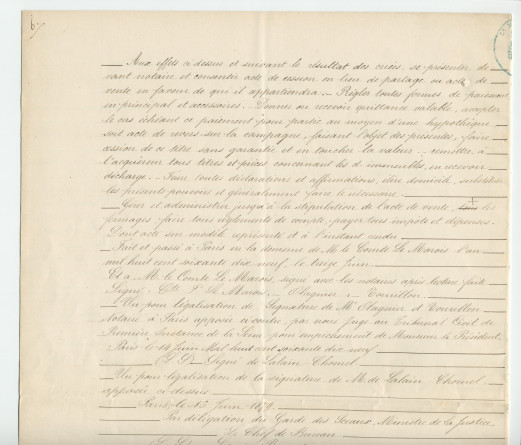 67
Aux effets ci dessus et suivant le résultat des criées, se présenter de
vant notaire et consentir acte de cession en lieu de partage ou acte de
vente en faveur de qui il appartiendra. — Régler toutes formes de paiement
en principal et accessoires. Donner ou recevoir quittance valable, accepter
le cas échéant ce paiement pour partie au moyen d'une hypothèque
soit acte de recors sur la campagne, faisant l'objet des présentes, faire
cession de ce titre sans garantie et en toucher la valeur, remettre à
l'acquéreur tous titres et pièces concernant les d. immeubles, en recevoir
décharge. — Faire toutes déclarations et affirmations, élire domicile, substituer
les présents pouvoirs et généralement faire le nécessaire.
Gérer et administrer jusqu'à la stipulation de l'acte de vente, tous les
fermages, faire tous règlements de compte, payer tous impôts et dépenses.
Dont acte sur modèle représenté et à l'instant rendu
Fait et passé à Paris en la demeure de M. le Comte Le Marois l'an
mil huit cent soixante dix neuf le treize Juin
Et a M. le Comte Le Marois, signé avec les notaires après lecture faite
Signé: Cte J. Le Marois. — Olagnier — Tourillon.
Vu pour légalisation de Signature de Mes Olagnier et Tourillon
notaire à Paris apposée ci contre, par nous Juge au Tribunal Civil de
Première Instance de la Seine pour empêchement de Monsieur le Président
Paris le 14 Juin Mil huit cent soixante dix neuf
Signé de Lalain Chomel
Vu pour légalisation de la signature de M. de Lalain Chomel
apposée ci dessus
Paris le 15 Juin 1879.
Par délégation du Garde des Sceaux, Ministre de la Justice
Le Chef de Bureau